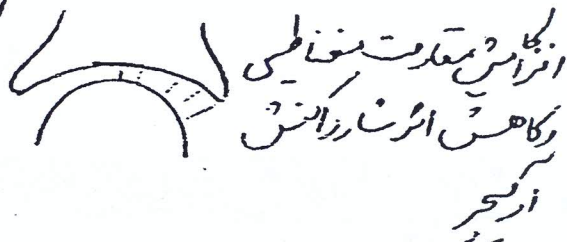 افزایش مقاومت مغناطیسی
و کاهش اثر شار واکنش
آرمیچر